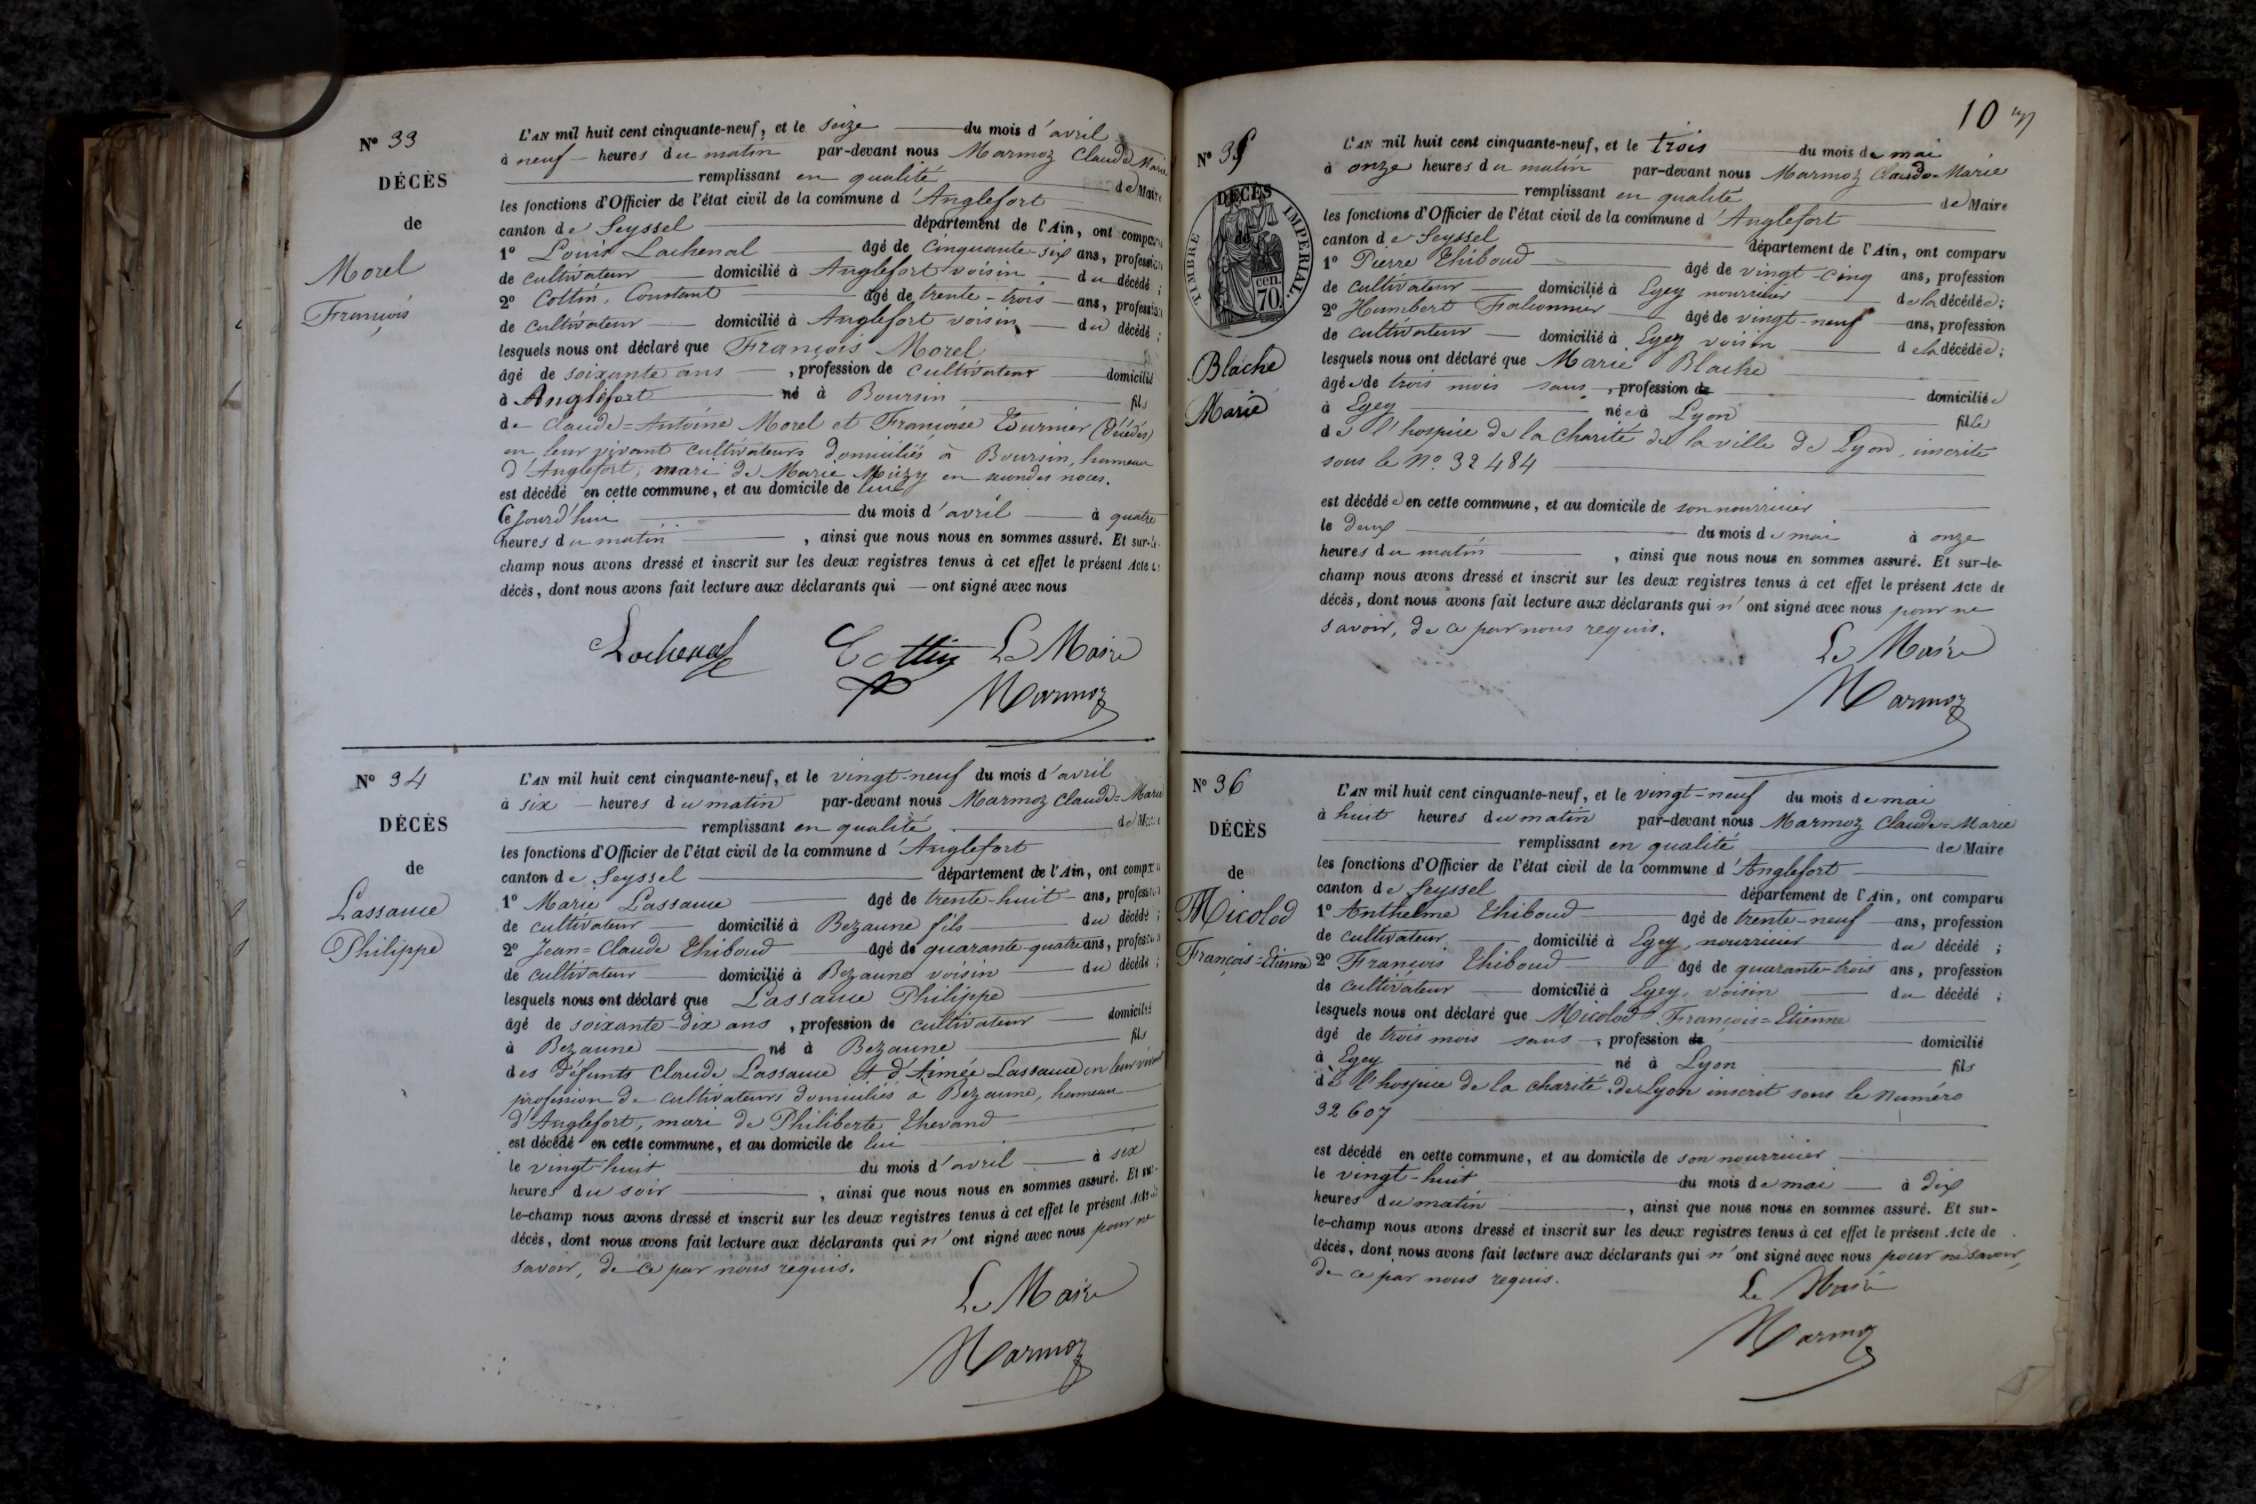 N° 33
DÉCÈS
de
Morel
François
L'AN mil huit cent cinquante-neuf, et le seize du mois d'avril
à neuf heures du matin par-devant nous Marmoz Claude Marie
remplissant en qualité de Maire
les fonctions d'Officier de l'état civil de la commune d'Anglefort
canton de Seyssel département de l'Ain, ont comparu
1° Louis Lachenal âgé de cinquante-six ans, profession
de cultivateur domicilié à Anglefort voisin du décédé ;
2° Cottin, Constant âgé de trente-trois ans, profession
de cultivateur domicilié à Anglefort voisin du décédé ;
lesquels nous ont déclaré que François Morel
âgé de soixante ans, profession de cultivateur domicilié
à Anglefort né à Boursin fils
de Claude=Antoine Morel et Françoise Tournier (Décédés)
en leur vivant cultivateurs domiciliés à Boursin, hameau
d'Anglefort, mari de Marie Muzy en secondes noces.
est décédé en cette commune, et au domicile de lui
Cejourd'hui du mois d'avril à quatre
heures du matin, ainsi que nous nous en sommes assuré. Et sur-le-
champ nous avons dressé et inscrit sur les deux registres tenus à cet effet le présent Acte de
décès, dont nous avons fait lecture aux déclarants qui ont signé avec nous
Lachenal Cottin Le Maire
Marmoz
N° 34
DÉCÈS
de
Lassaue
Philippe
L'AN mil huit cent cinquante-neuf, et le vingt-neuf du mois d'avril
à six heures du matin par-devant nous Marmoz Claude=Marie
remplissant en qualité de Maire
les fonctions d'Officier de l'état civil de la commune d'Anglefort
canton de Seyssel département de l'Ain, ont comparu
1° Marie Lassaue âgé de trente-huit ans, profession
de cultivateur domicilié à Bezaune fils du décédé ;
2° Jean=Claude Thiboud âgé de quarante-quatre ans, profession
de cultivateur domicilié à Bezaune voisin du décédé ;
lesquels nous ont déclaré que Lassaue Philippe
âgé de soixante-dix ans, profession de cultivateur domicilié
à Bezaune né à Bezaune fils
des défunts Claude Lassaue et d'Aimée Lassaue en leur vivant
profession de cultivateurs domiciliés à Bezaune, hameau
d'Anglefort, mari de Philiberte Thevand
est décédé en cette commune, et au domicile de lui
le vingt-huit du mois d'avril à six
heures du soir, ainsi que nous nous en sommes assuré. Et sur-
le-champ nous avons dressé et inscrit sur les deux registres tenus à cet effet le présent Acte de
décès, dont nous avons fait lecture aux déclarants qui n'ont signé avec nous pour ne
savoir, de ce par nous requis.
Le Maire
Marmoz
10
N° 35
DÉCÈS
de
TIMBRE IMPÉRIAL.
70 cen.
Blache
Marie
L'AN mil huit cent cinquante-neuf, et le trois du mois de mai
à onze heures du matin par-devant nous Marmoz Claude=Marie
remplissant en qualité de Maire
les fonctions d'Officier de l'état civil de la commune d'Anglefort
canton de Seyssel département de l'Ain, ont comparu
1° Pierre Thiboud âgé de vingt-cinq ans, profession
de cultivateur domicilié à Eyey nourricier de la décédée ;
2° Humbert Falconnier âgé de vingt-neuf ans, profession
de cultivateur domicilié à Eyey voisin de la décédée ;
lesquels nous ont déclaré que Marie Blache
âgée de trois mois sans, profession de domiciliée
à Eyey née à Lyon fille
de l'hospice de la charité de la ville de Lyon, inscrite
sous le N° 32484
est décédée en cette commune, et au domicile de son nourricier
le deux du mois de mai à onze
heures du matin, ainsi que nous nous en sommes assuré. Et sur-le-
champ nous avons dressé et inscrit sur les deux registres tenus à cet effet le présent Acte de
décès, dont nous avons fait lecture aux déclarants qui n'ont signé avec nous pour ne
savoir, de ce par nous requis.
Le Maire
Marmoz
N° 36
DÉCÈS
de
Micolod
François=Etienne
L'AN mil huit cent cinquante-neuf, et le vingt=neuf du mois de mai
à huit heures du matin par-devant nous Marmoz Claude=Marie
remplissant en qualité de Maire
les fonctions d'Officier de l'état civil de la commune d'Anglefort
canton de Seyssel département de l'Ain, ont comparu
1° Anthelme Thiboud âgé de trente-neuf ans, profession
de cultivateur domicilié à Eyey, nourricier du décédé ;
2° François Thiboud âgé de quarante-trois ans, profession
de cultivateur domicilié à Eyey, voisin du décédé ;
lesquels nous ont déclaré que Micolod François=Etienne
âgé de trois mois sans, profession de domicilié
à Eyey né à Lyon fils
de l'hospice de la charité de Lyon inscrit sous le numéro
32607
est décédé en cette commune, et au domicile de son nourricier
le vingt-huit du mois de mai à dix
heures du matin, ainsi que nous nous en sommes assuré. Et sur-
le-champ nous avons dressé et inscrit sur les deux registres tenus à cet effet le présent Acte de
décès, dont nous avons fait lecture aux déclarants qui n'ont signé avec nous pour ne savoir,
de ce par nous requis.
Le Maire
Marmoz